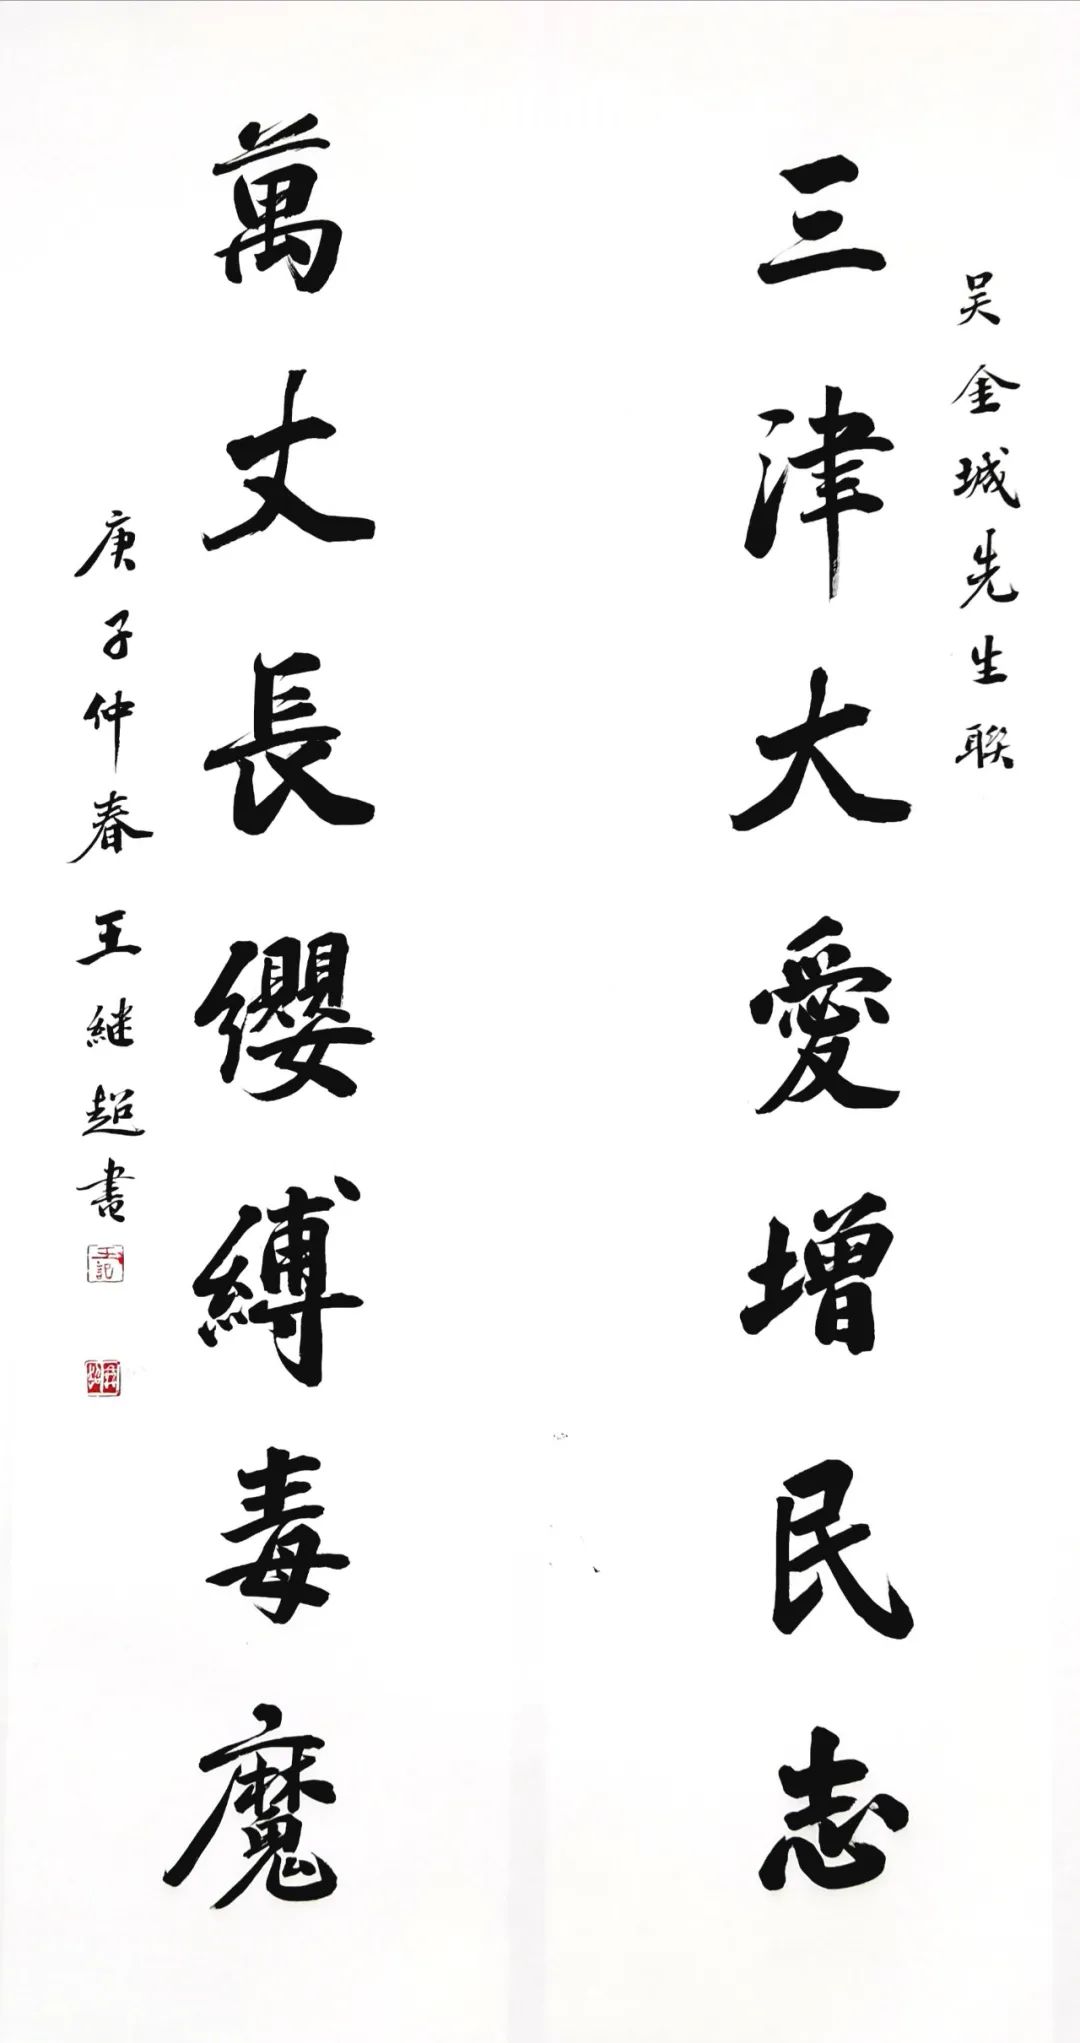 吴金城先生联
三津大愛增民志
萬丈長纓縛毒魔
庚子仲春王継超書